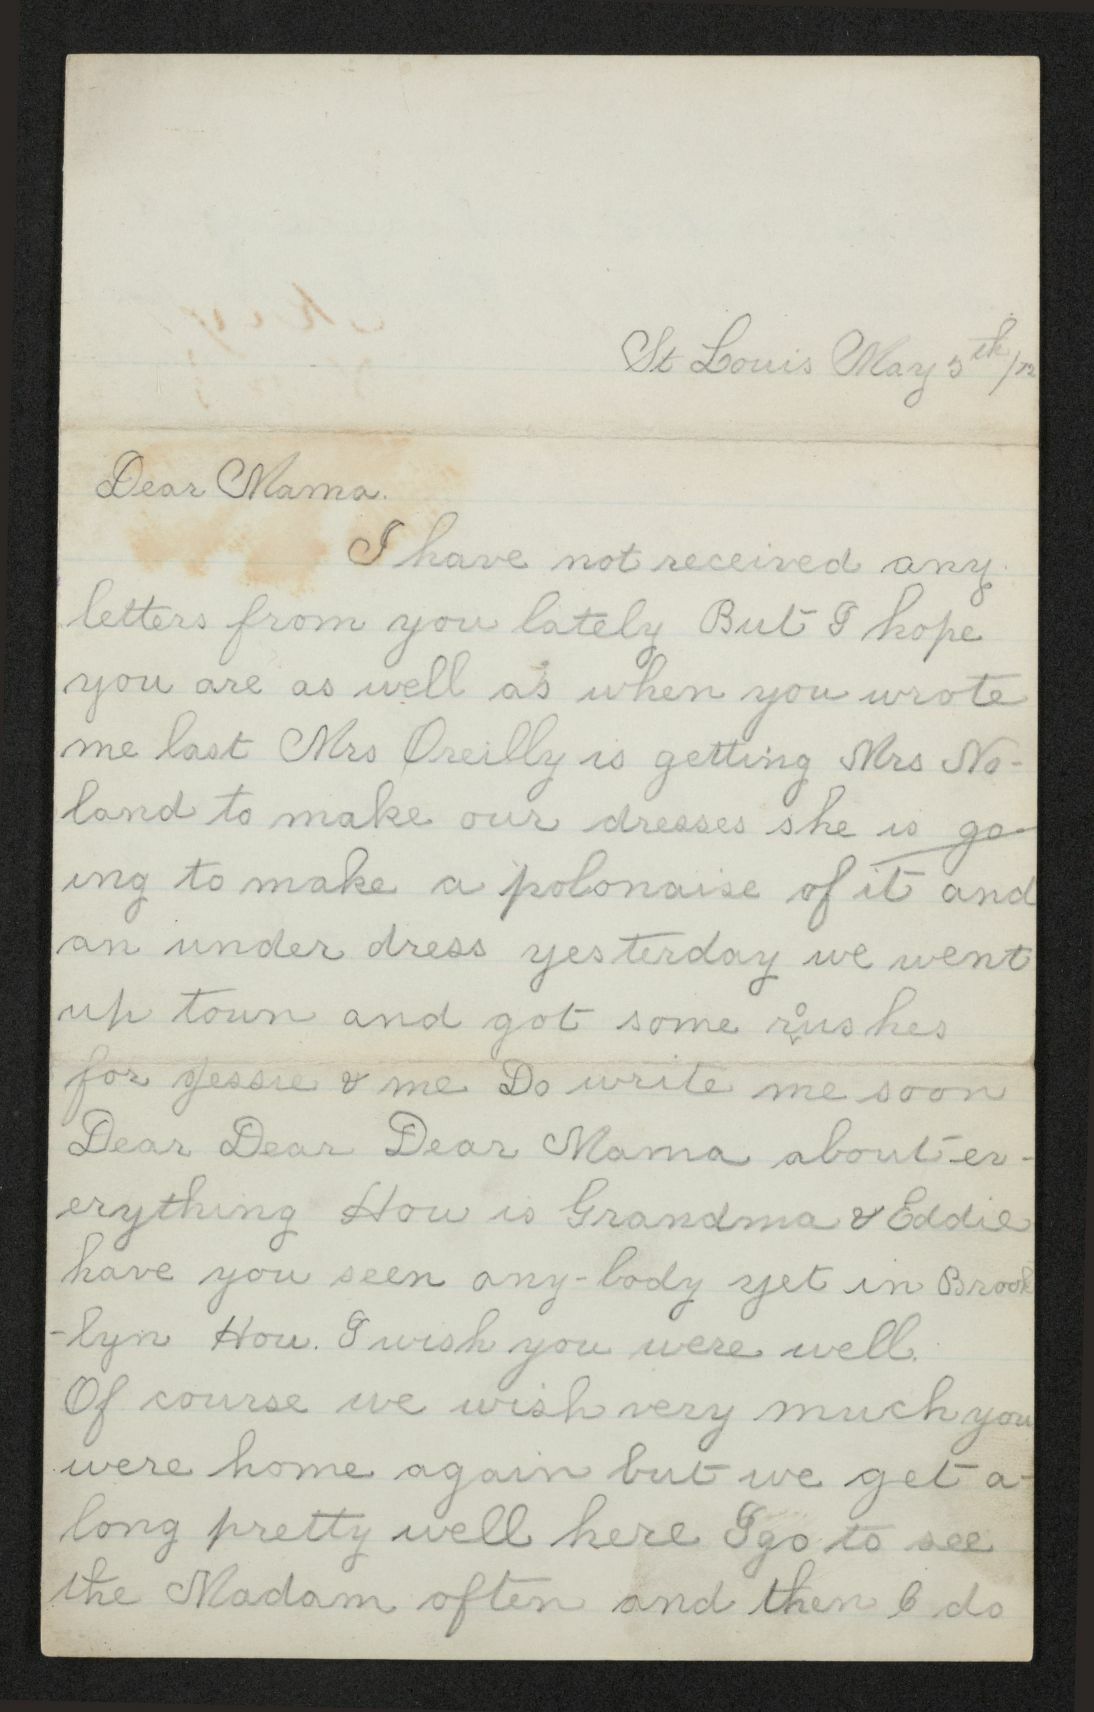 St Louis May 5th/72
Dear Mama.
I have not received any
letters from you lately But I hope
you are as well as when you wrote
me last Mrs Oreilly is getting Mrs No-
land to make our dresses she is go-
ing to make a polonaise of it and
an under dress yesterday we went
up town and got some rushes
for Jessie & me Do write me soon
Dear Dear Dear Mama about ev-
erything How is Grandma & Eddie
have you seen any-body yet in Brook
-lyn How. I wish you were well.
Of course we wish very much you
were home again but we get a-
long pretty well here I go to see
the Madam often and then I do